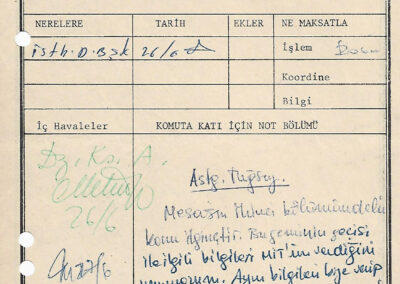 NERELERE TARİH EKLER NE MAKSATLA
İsth.D.Bşk 26/6 İşlem
Koordine
Bilgi
İç Havaleler KOMUTA KATI İÇİN NOT BÖLÜMÜ
Dz. Ks. A.
26/6
Mesajın ikinci bölümündeki
konu ilginçtir. Bu geminin geçişi
ile ilgili bilgileri MİT'in verdiğini
Aynı bilgileri bize verip